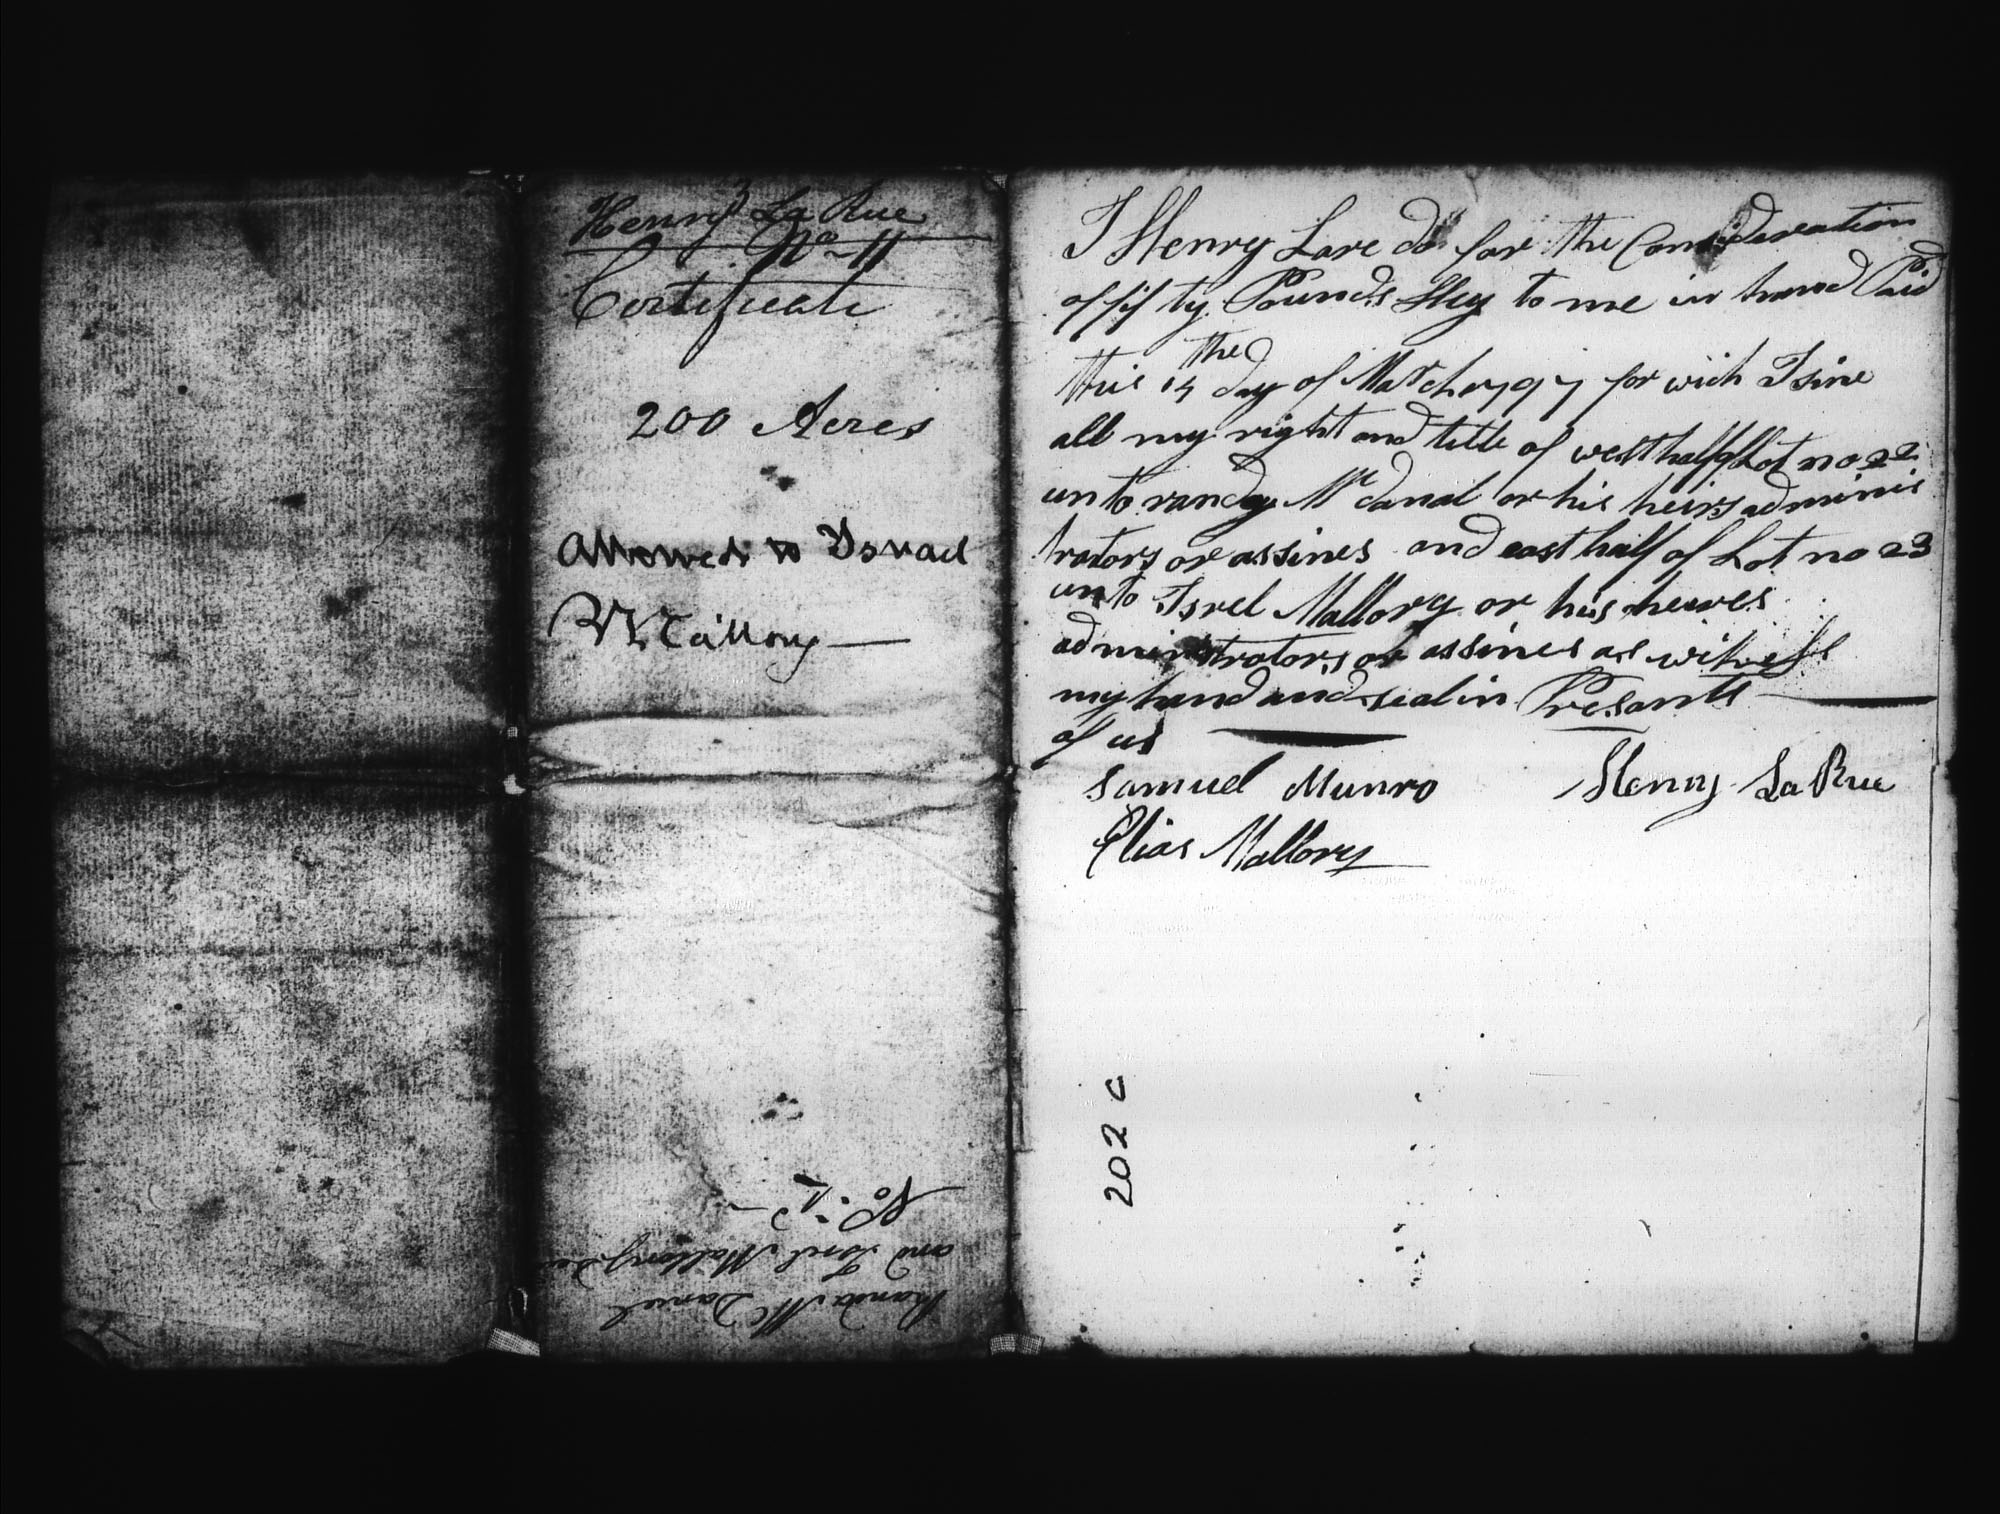 Henry La Rue
No 11
Certificate
200 Acres
Allowed to Israel
Mallory
No. 
and Isrel Mallory
Randa Mc Daniel
I Henry Lare do for the Consideration
of fifty Pounds Hey to me in hand Paid
this 14 the day of March 1797 for wich I sine
all my right and title of west half of Lot no 22
unto randey Mc danal or his heirs adminis
trators or assines and east half of Lot no 23
unto Isrel Mallory or his heires
administrators or assines as witness
my hand and seal in Presants
of us
Samuel Munro Henry La Rue
Elias Mallory
202 c